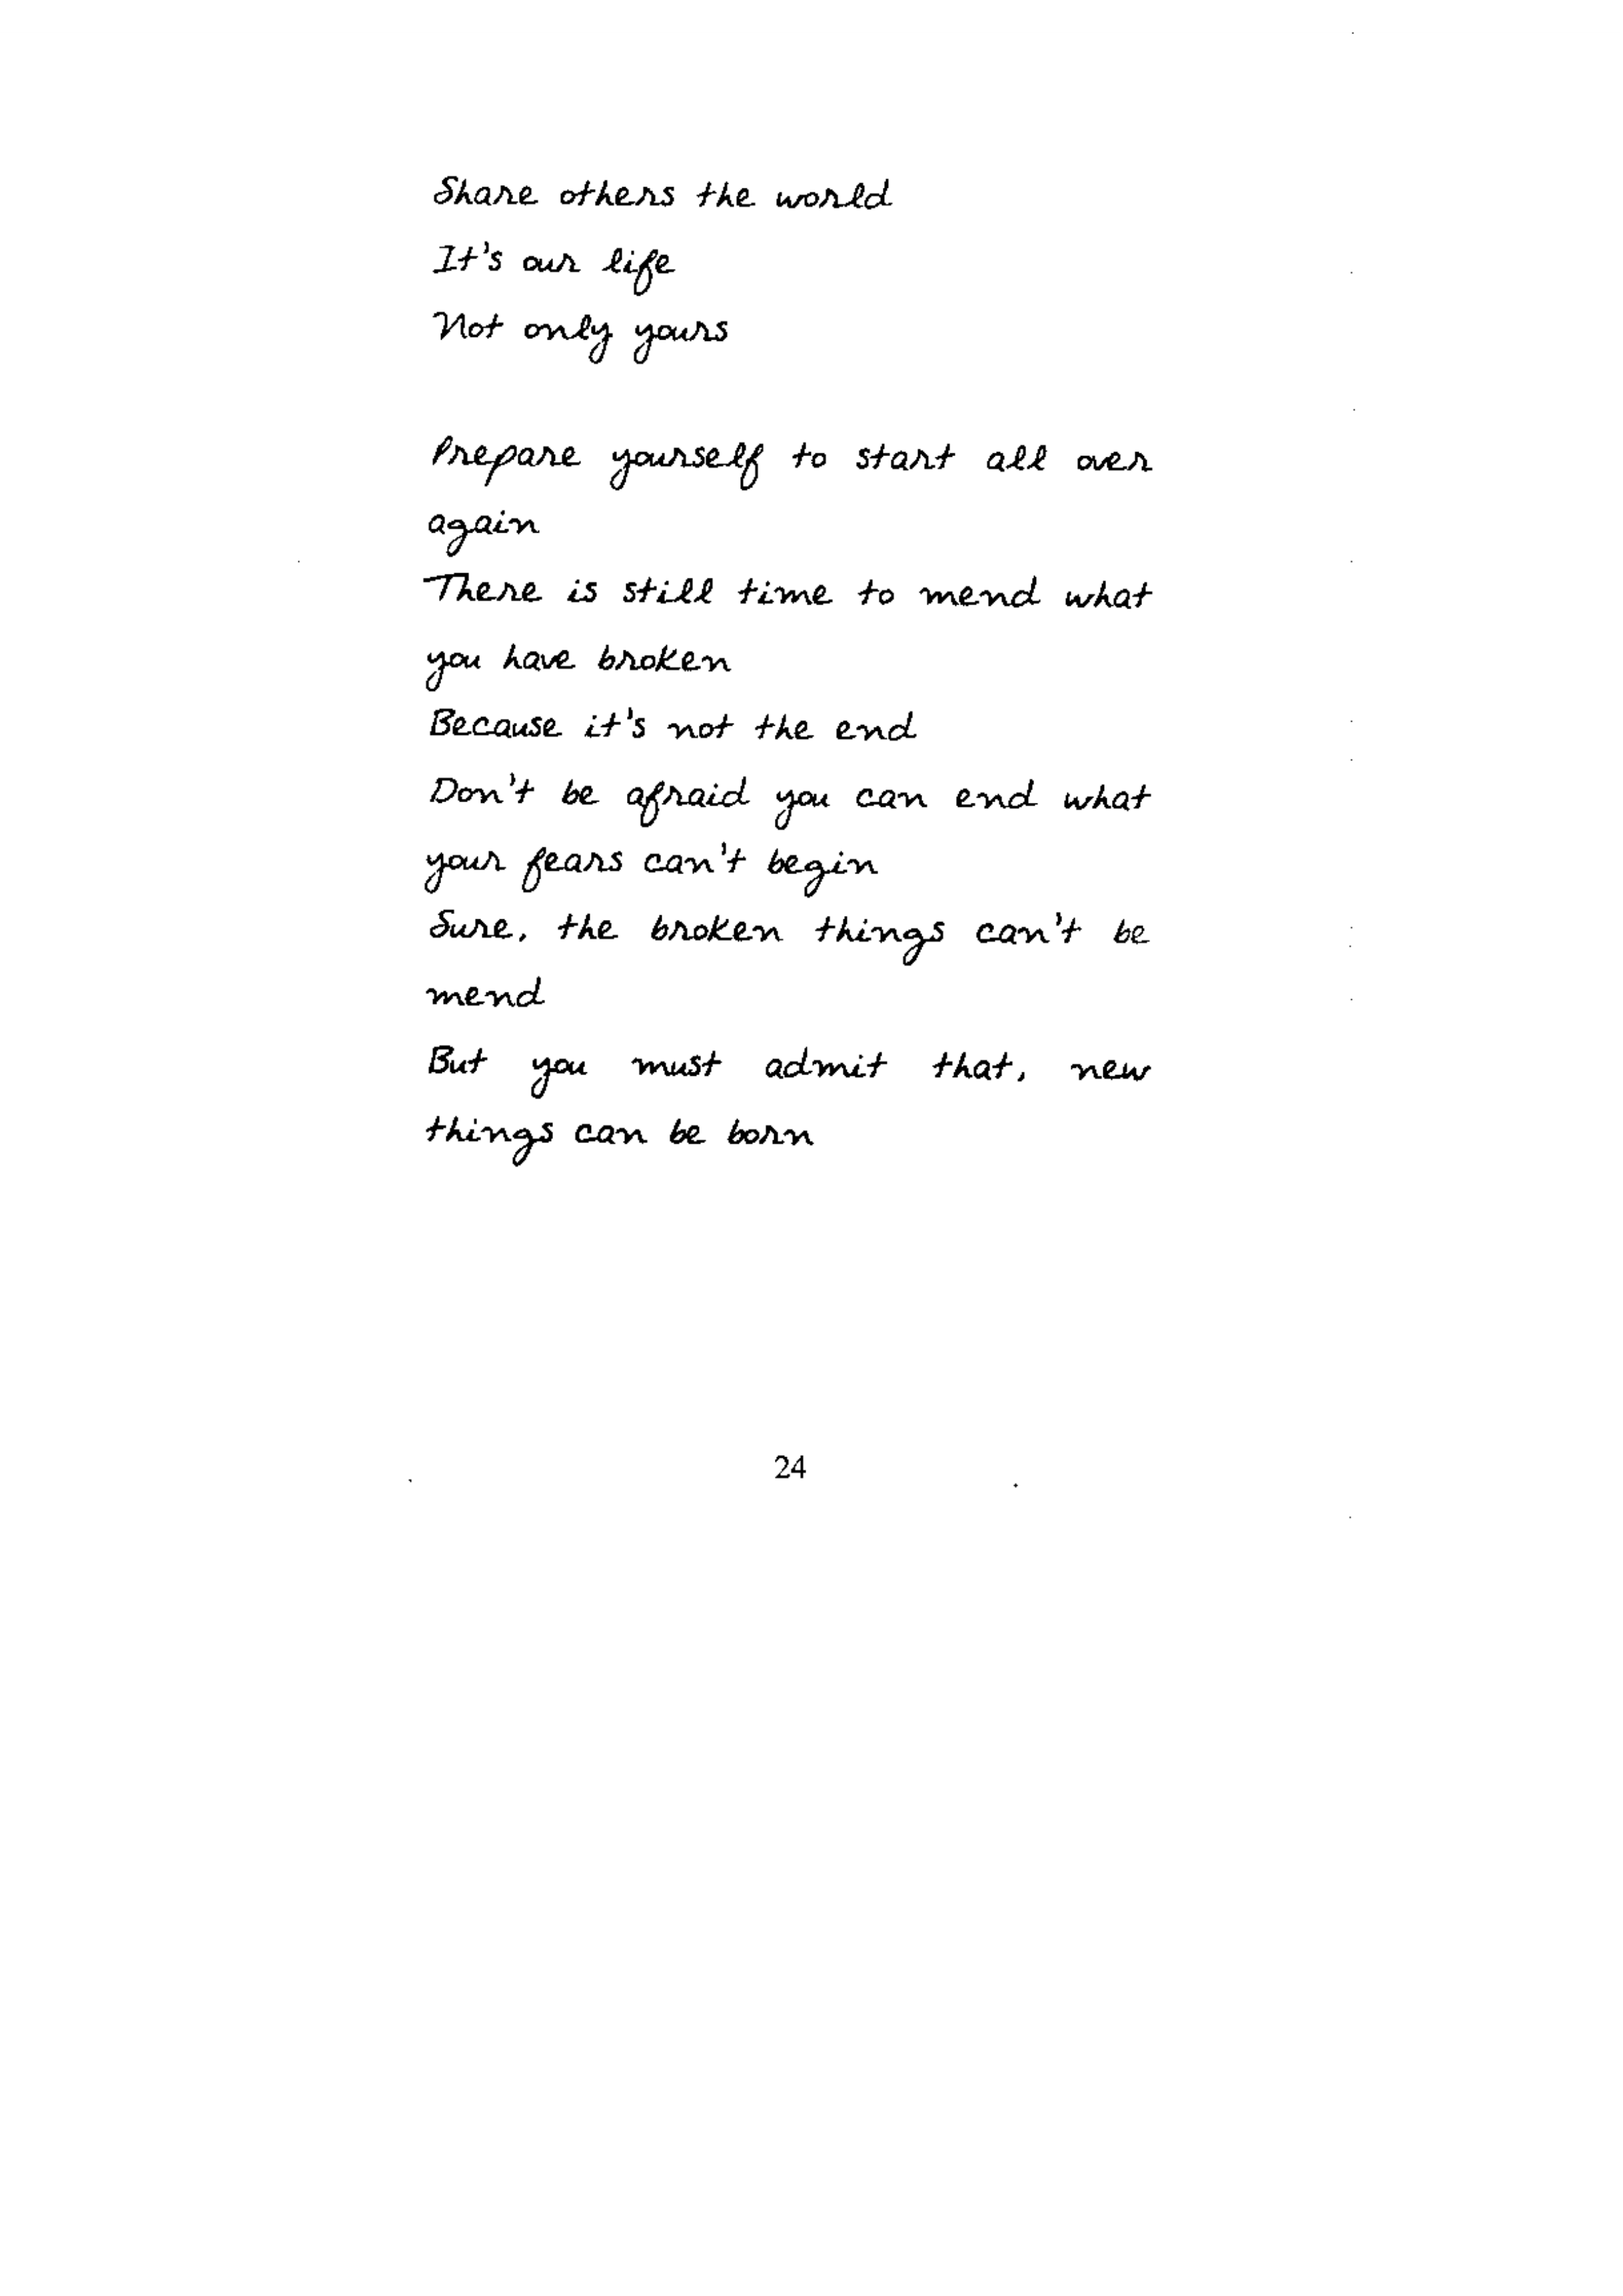 Share others the world
It's our life
Not only yours
Prepare yourself to start all over
again
There is still time to mend what
you have broken
Because it's not the end
Don't be afraid you can end what
your fears can't begin
Sure, the broken things can't be
mend
But you must admit that, new
things can be born
24